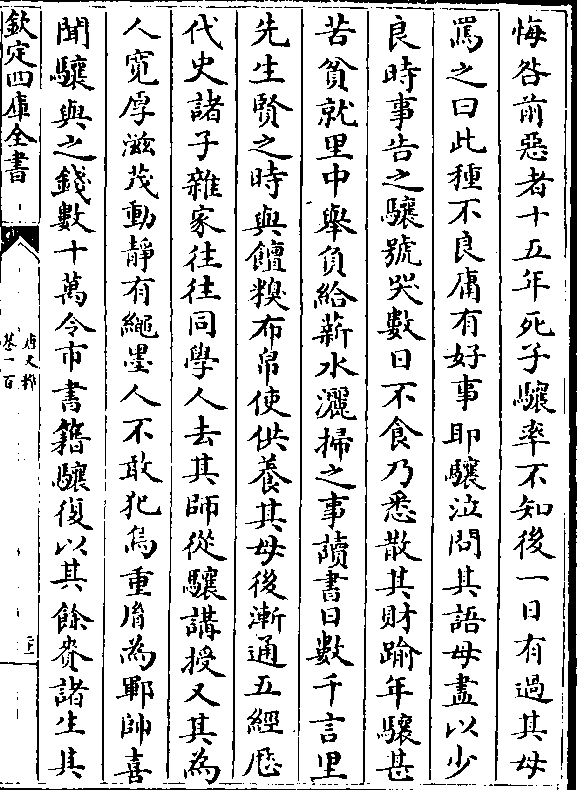 悔咎前惡者十五年死子驤率不知後一日有過其母
罵之曰此種不良庸有好事耶驤泣問其語母盡以少
良時事告之驤號哭數日不食乃悉散其財踰年驤甚
苦貧就里中舉負給薪水灑掃之事讀書日數千言里
先生賢之時與饘糗布帛使供養其母後漸通五經歴
代史諸子雜家往往同學人去其師從驤講授又其為
人寛厚滋茂動靜有繩墨人不敢犯烏重𦙍為鄆帥喜
聞驤與之錢數十萬令市書籍驤復以其餘赉諸生其
欽定四庫全書
唐文粹
卷一百